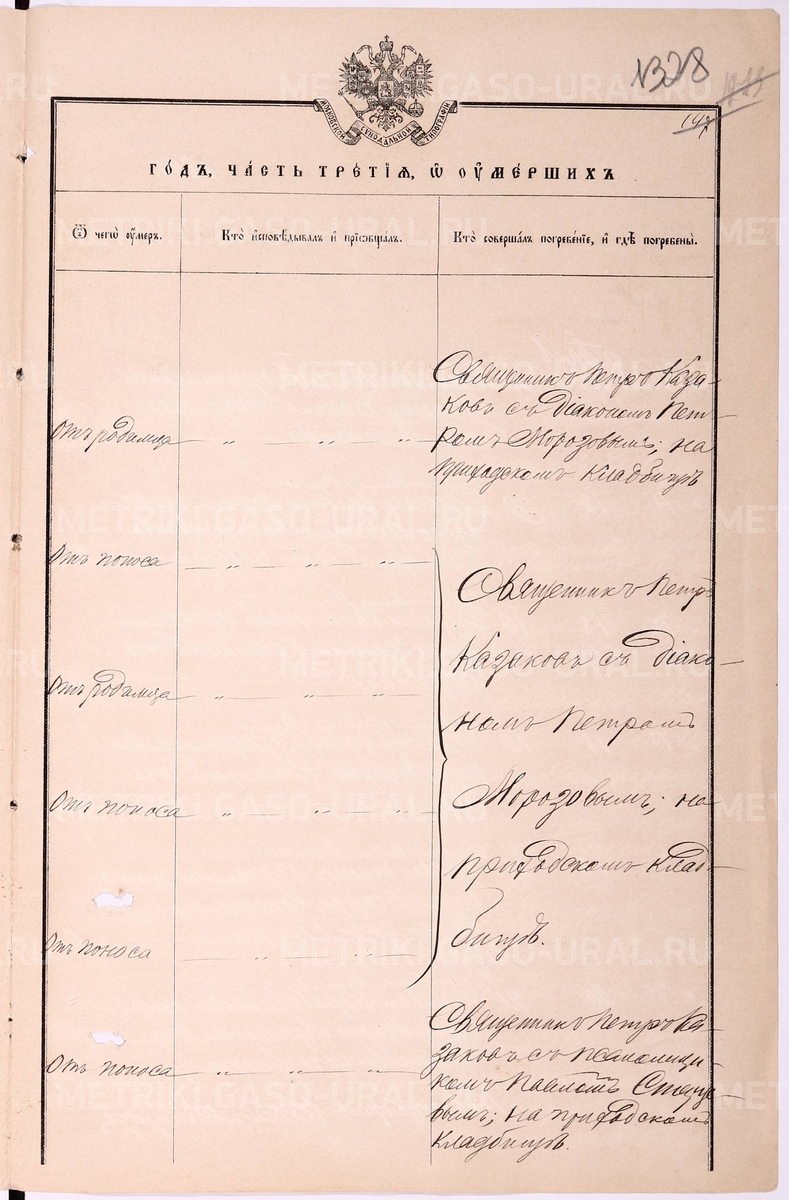 №328
147
МОСКОВСКОЙ СѴНОДАЛЬНОЙ ТИПОГРАФІИ
ГО́ДЪ, ЧА́СТЬ ТРЕ́ТІѦ, Ѡ҆ ОУ҆МЕ́РШИХЪ
Ѿ чегѡ̀ оу҆́меръ.
Кто̀ и҆сповѣ́дывалъ и҆ прїѻбща́лъ.
Кто̀ соверша́лъ погребе́нїе, и҆ гдѣ̀ погребены̀.
Отъ родимца
Священникъ Петръ Каза-
ковъ съ Діакономъ Пет-
ромъ Морозовымъ; на
приходскомъ кладбищѣ
Отъ поноса
Отъ родимца
Отъ поноса
Отъ поноса
Священникъ Петръ
Казаковъ съ Діако-
номъ Петромъ
Морозовымъ; на
приходскомъ клад-
бищѣ.
Отъ поноса
Священникъ Петръ Ка-
заковъ съ псаломщи-
комъ Павломъ
вымъ; на приходскомъ
кладбищѣ.
METRIKI.GASO-URAL.RU